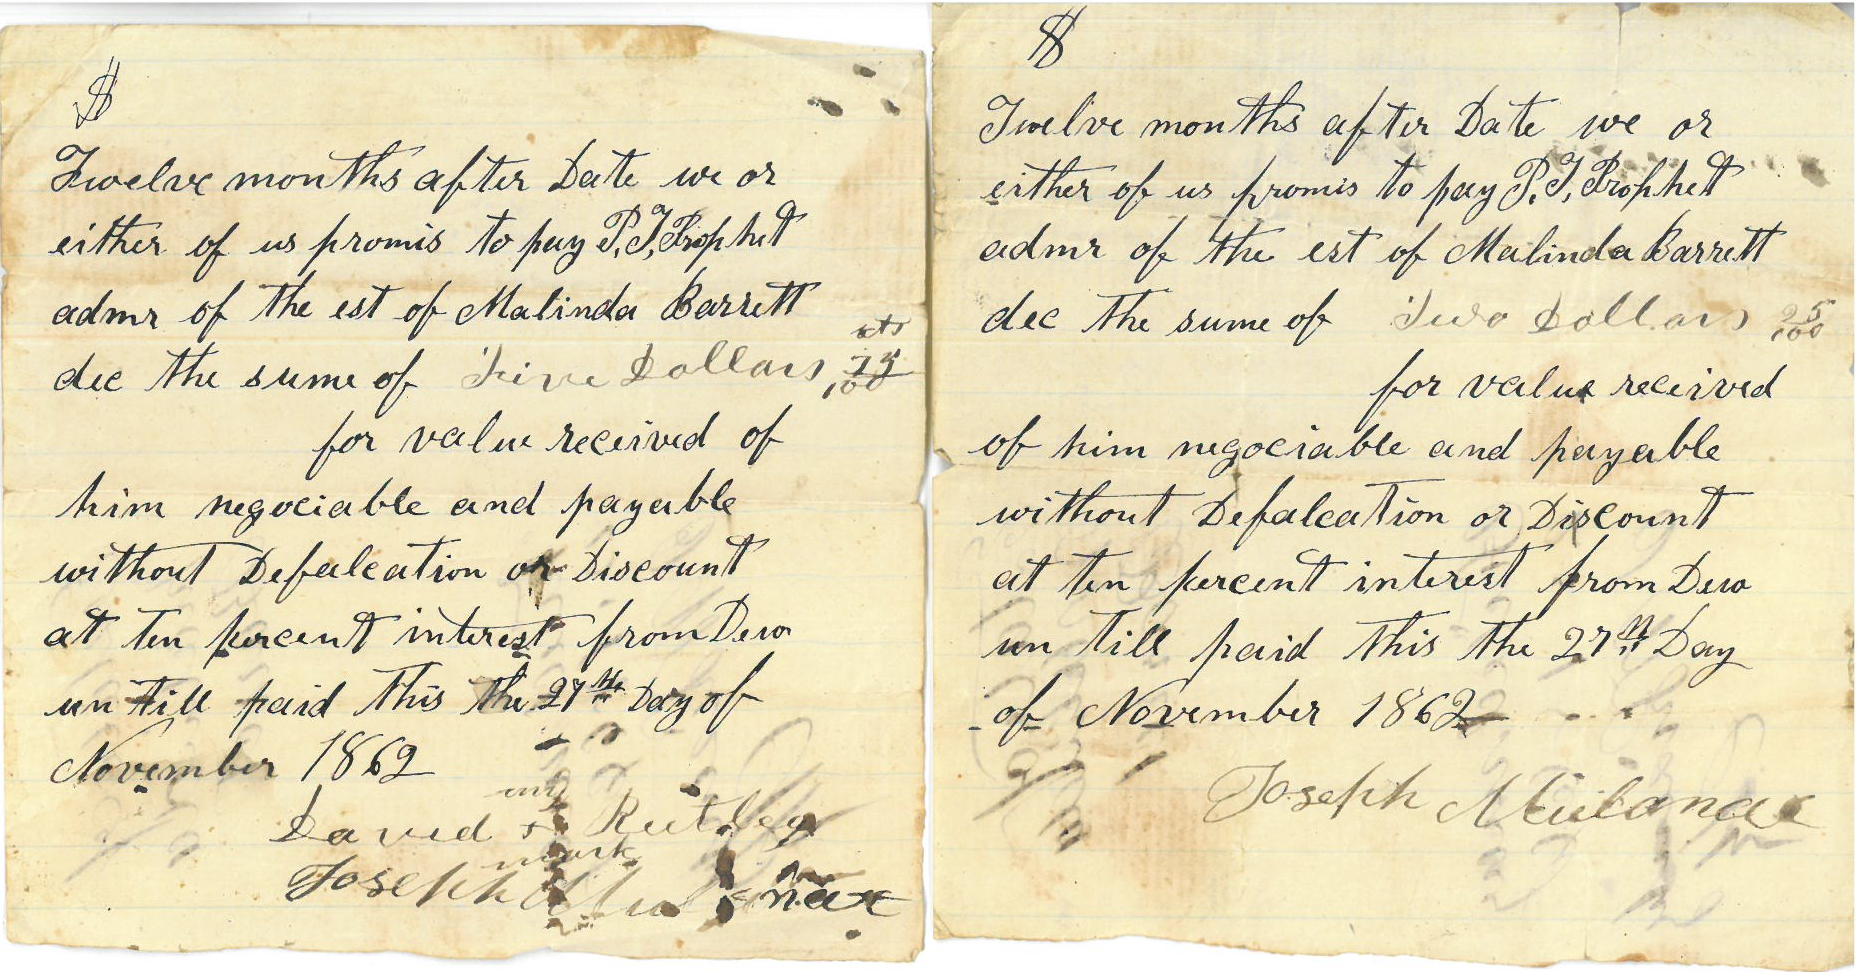 $
Twelve months after Date we or
either of us promis to pay P. T. Prophet
admr of the est of Malinda Barrett
cts
dec the sume of Five Dollars 75/100
for value received of
him negociable and payable
without Defalcation or Discount
at ten percent interest from Dew
un till paid this the 27th Day of
November 1862
David x Rutley
mark
Joseph
$
Twelve months after Date we or
either of us promis to pay P. T. Prophet
admr of the est of Malinda Barrett
dec the sume of Two Dollars 25/100
for value received
of him negociable and payable
without Defalcation or Discount
at ten percent interest from Dew
un till paid this the 27th Day
of November 1862
Joseph